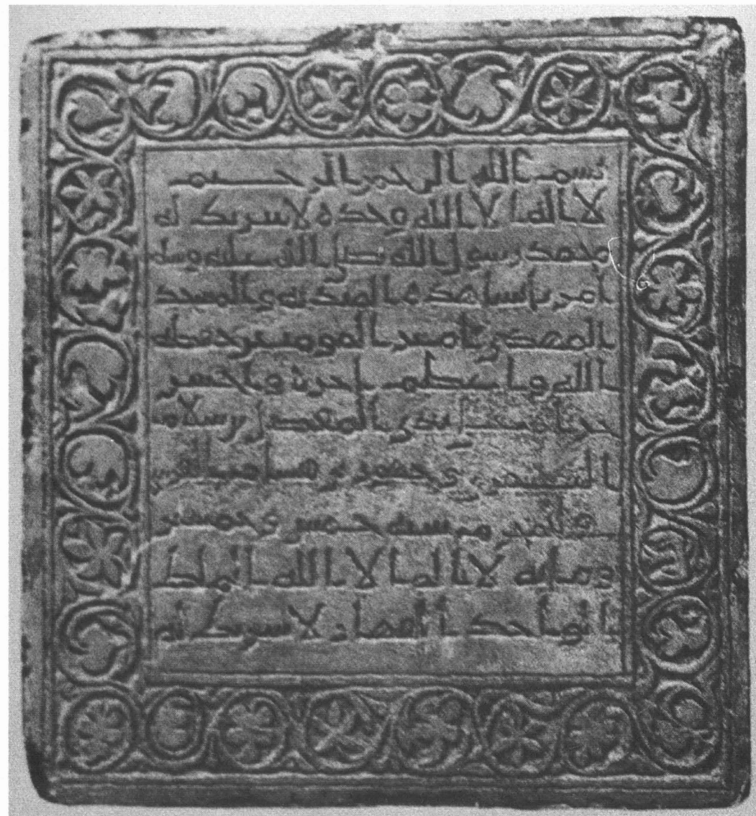 بسم الله الرحمن الرحيم
لا اله الا الله وحده لا شريك له
محمد رسول الله صلى الله عليه وسلم
امر ببنيا هذه المئذنه والمسجد
المهدي امير المومنين حفظه
الله واعظم اجره واحسن
جزاه على يدي المفضل بن سلام
النميري وجهور بن هشام القرشي
سنه خمس وخمسين
ومايه لا اله الا الله الملك
الواحد القهار لا شريك له